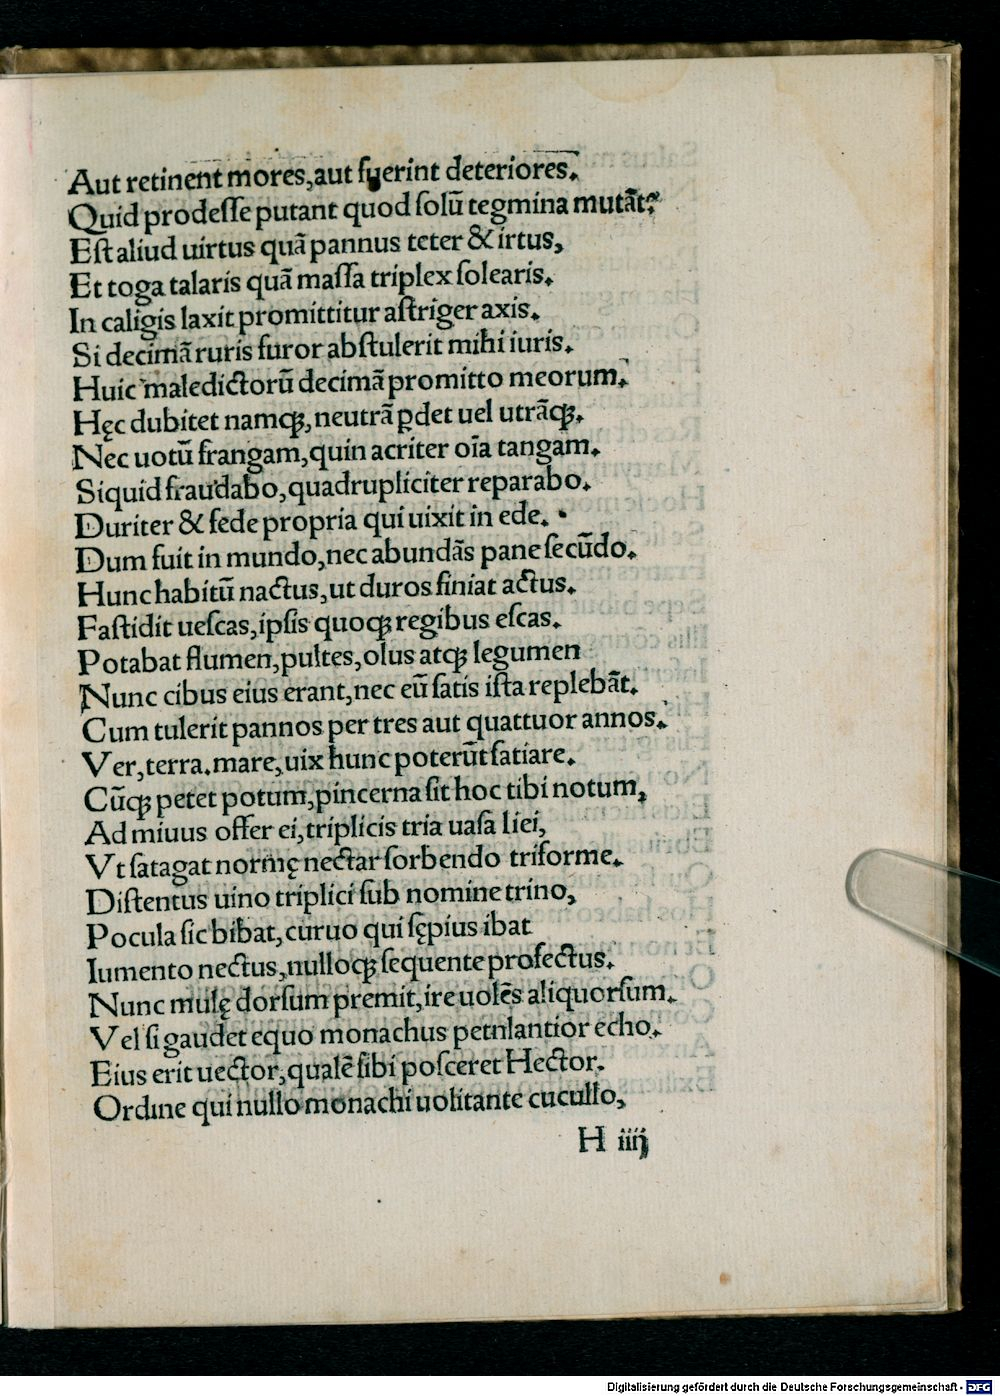 Aut retinent mores,aut fuerint deteriores.
Quid prodeſſe putant quod ſolū tegmina mutāt?
Eſt aliud uirtus quā pannus teter & irtus,
Et toga talaris quā maſſa triplex ſolearis.
In caligis laxit promittitur aſtriger axis.
Si decimā ruris furor abſtulerit mihi iuris.
Huic maledictorū decimā promitto meorum.
Hęc dubitet namqꝫ, neutrā ꝑdet uel utrāqꝫ.
Nec uotū frangam,quin acriter oīa tangam.
Siquid fraudabo,quadrupliciter reparabo.
Duriter & fede propria qui uixit in ede.
Dum fuit in mundo,nec abundās pane ſecūdo.
Hunc habitū nactus,ut duros finiat actus.
Faſtidit ueſcas,ipſis quoqꝫ regibus eſcas.
Potabat flumen,pultes,olus atqꝫ legumen
Nunc cibus eius erant,nec eū ſatis iſta replebāt.
Cum tulerit pannos per tres aut quattuor annos.
Ver,terra.mare,uix hunc poterūt ſatiare.
Cūqꝫ petet potum,pincerna ſit hoc tibi notum,
Ad miuus offer ei,triplicis tria uaſa liei,
Vt ſatagat normę nectar ſorbendo triforme.
Diſtentus uino triplici ſub nomine trino,
Pocula ſic bibat,curuo qui ſępius ibat
Iumento nectus,nulloqꝫ ſequente profectus.
Nunc mulę dorſum premit,ire uolēs aliquorſum.
Vel ſi gaudet equo monachus petnlantior echo.
Eius erit uector,qualē ſibi poſceret Hector.
Ordine qui nullo monachi uolitante cucullo,
H iiij
Digitalisierung gefördert durch die Deutsche Forschungsgemeinschaft - DFG